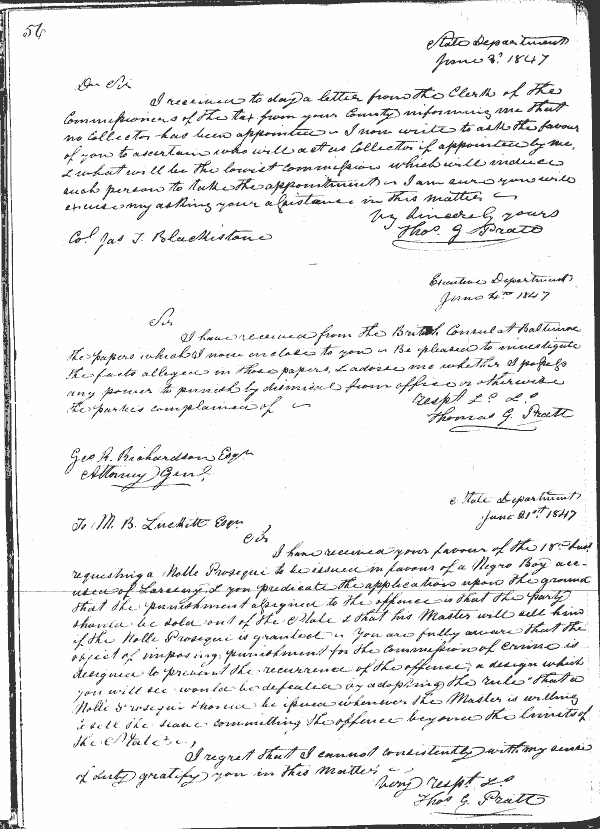 56
State Department
June 3d. 1847
Dr Sir
I received to day a letter from the Clerk of the
Commissioners of the tax from your County informing me that
no Collector has been appointed. I now write to ask the favour
of you to ascertain who will act as Collector if appointed by me,
& what will be the lowest commission which will induce
such person to take the appointment. I am sure you will
excuse my asking your assistance in this matter
Vy Sincerely yours
Thos. G Pratt
Col Jas T. Blackistone
Executive Department
June 4th 1847
Sir
I have received from the British Consul at Baltimore
the papers which I now enclose to you. Be pleased to investigate
the facts alleged in those papers, & advise me whether I possess
any power to punish by dismissal from office or otherwise
the parties complained of
respt &c &c
Thomas G. Pratt
Geo R. Richardson Esqr
Attorney Genl.
State Department
June 21st. 1847
To M. B. Luckett Esqr
Sir
I have received your favour of the 18th Inst
requesting a Nolle Prosequi to be issued in favour of a Negro Boy acc-
used of Larceny, & you predicate the application upon the ground
that the punishment assigned to the offence is that the party
should be sold out of the State & that his Master will sell him
if the Nolle Prosequi is granted. You are fully aware that the
object of imposing punishment for the commission of Crime is
designed to prevent the recurrence of the offence, a design which
you will see would be defeated by adopting the rule that a
Nolle Prosequi should be issued whenever the Master is willing
to sell the slave committing the offence beyond the limits of
the State
I regret that I cannot consistently with my sense
of duty gratify you in this matter
Very respt &c
Thos G. Pratt